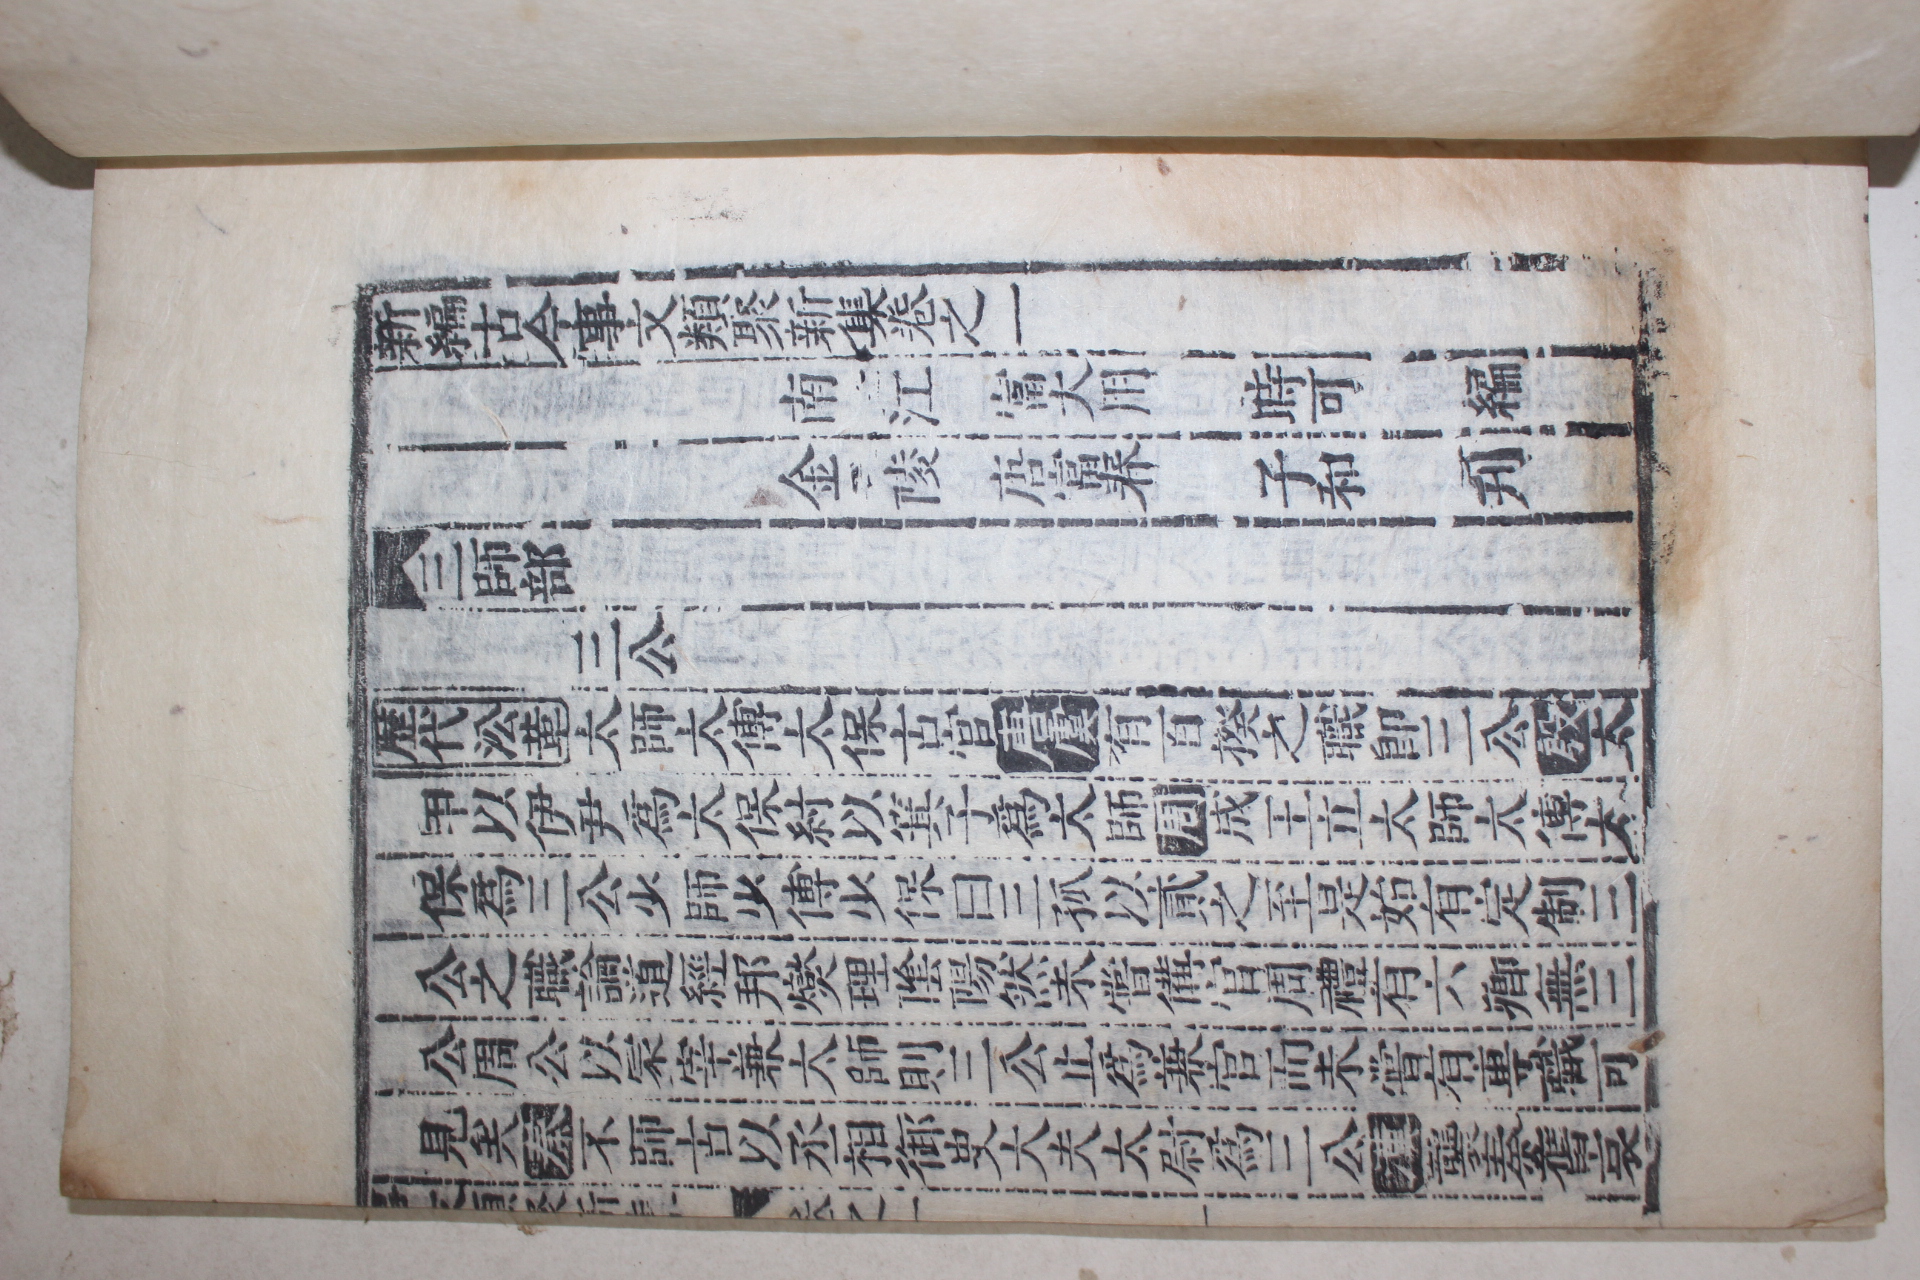 新編古今事文類聚新集卷之一
南江 富大用 時可 編
金陵 唐富春 子和 刊
三師部
三公
歷代沿革太師太傅太保古官唐虞有百揆之職卽三公殷太
甲以伊尹爲太保紂以箕子爲太師周成王立太師太傅太
保爲三公少師少傅少保曰三孤以貳之至是始有定制三
公之職論道經邦燮理陰陽然未嘗備官周禮有六卿無三
公周公以冢宰兼太師則三公止爲兼官而未嘗有專職可
見矣秦不師古以丞相御史大夫太尉爲三公漢襲秦舊哀